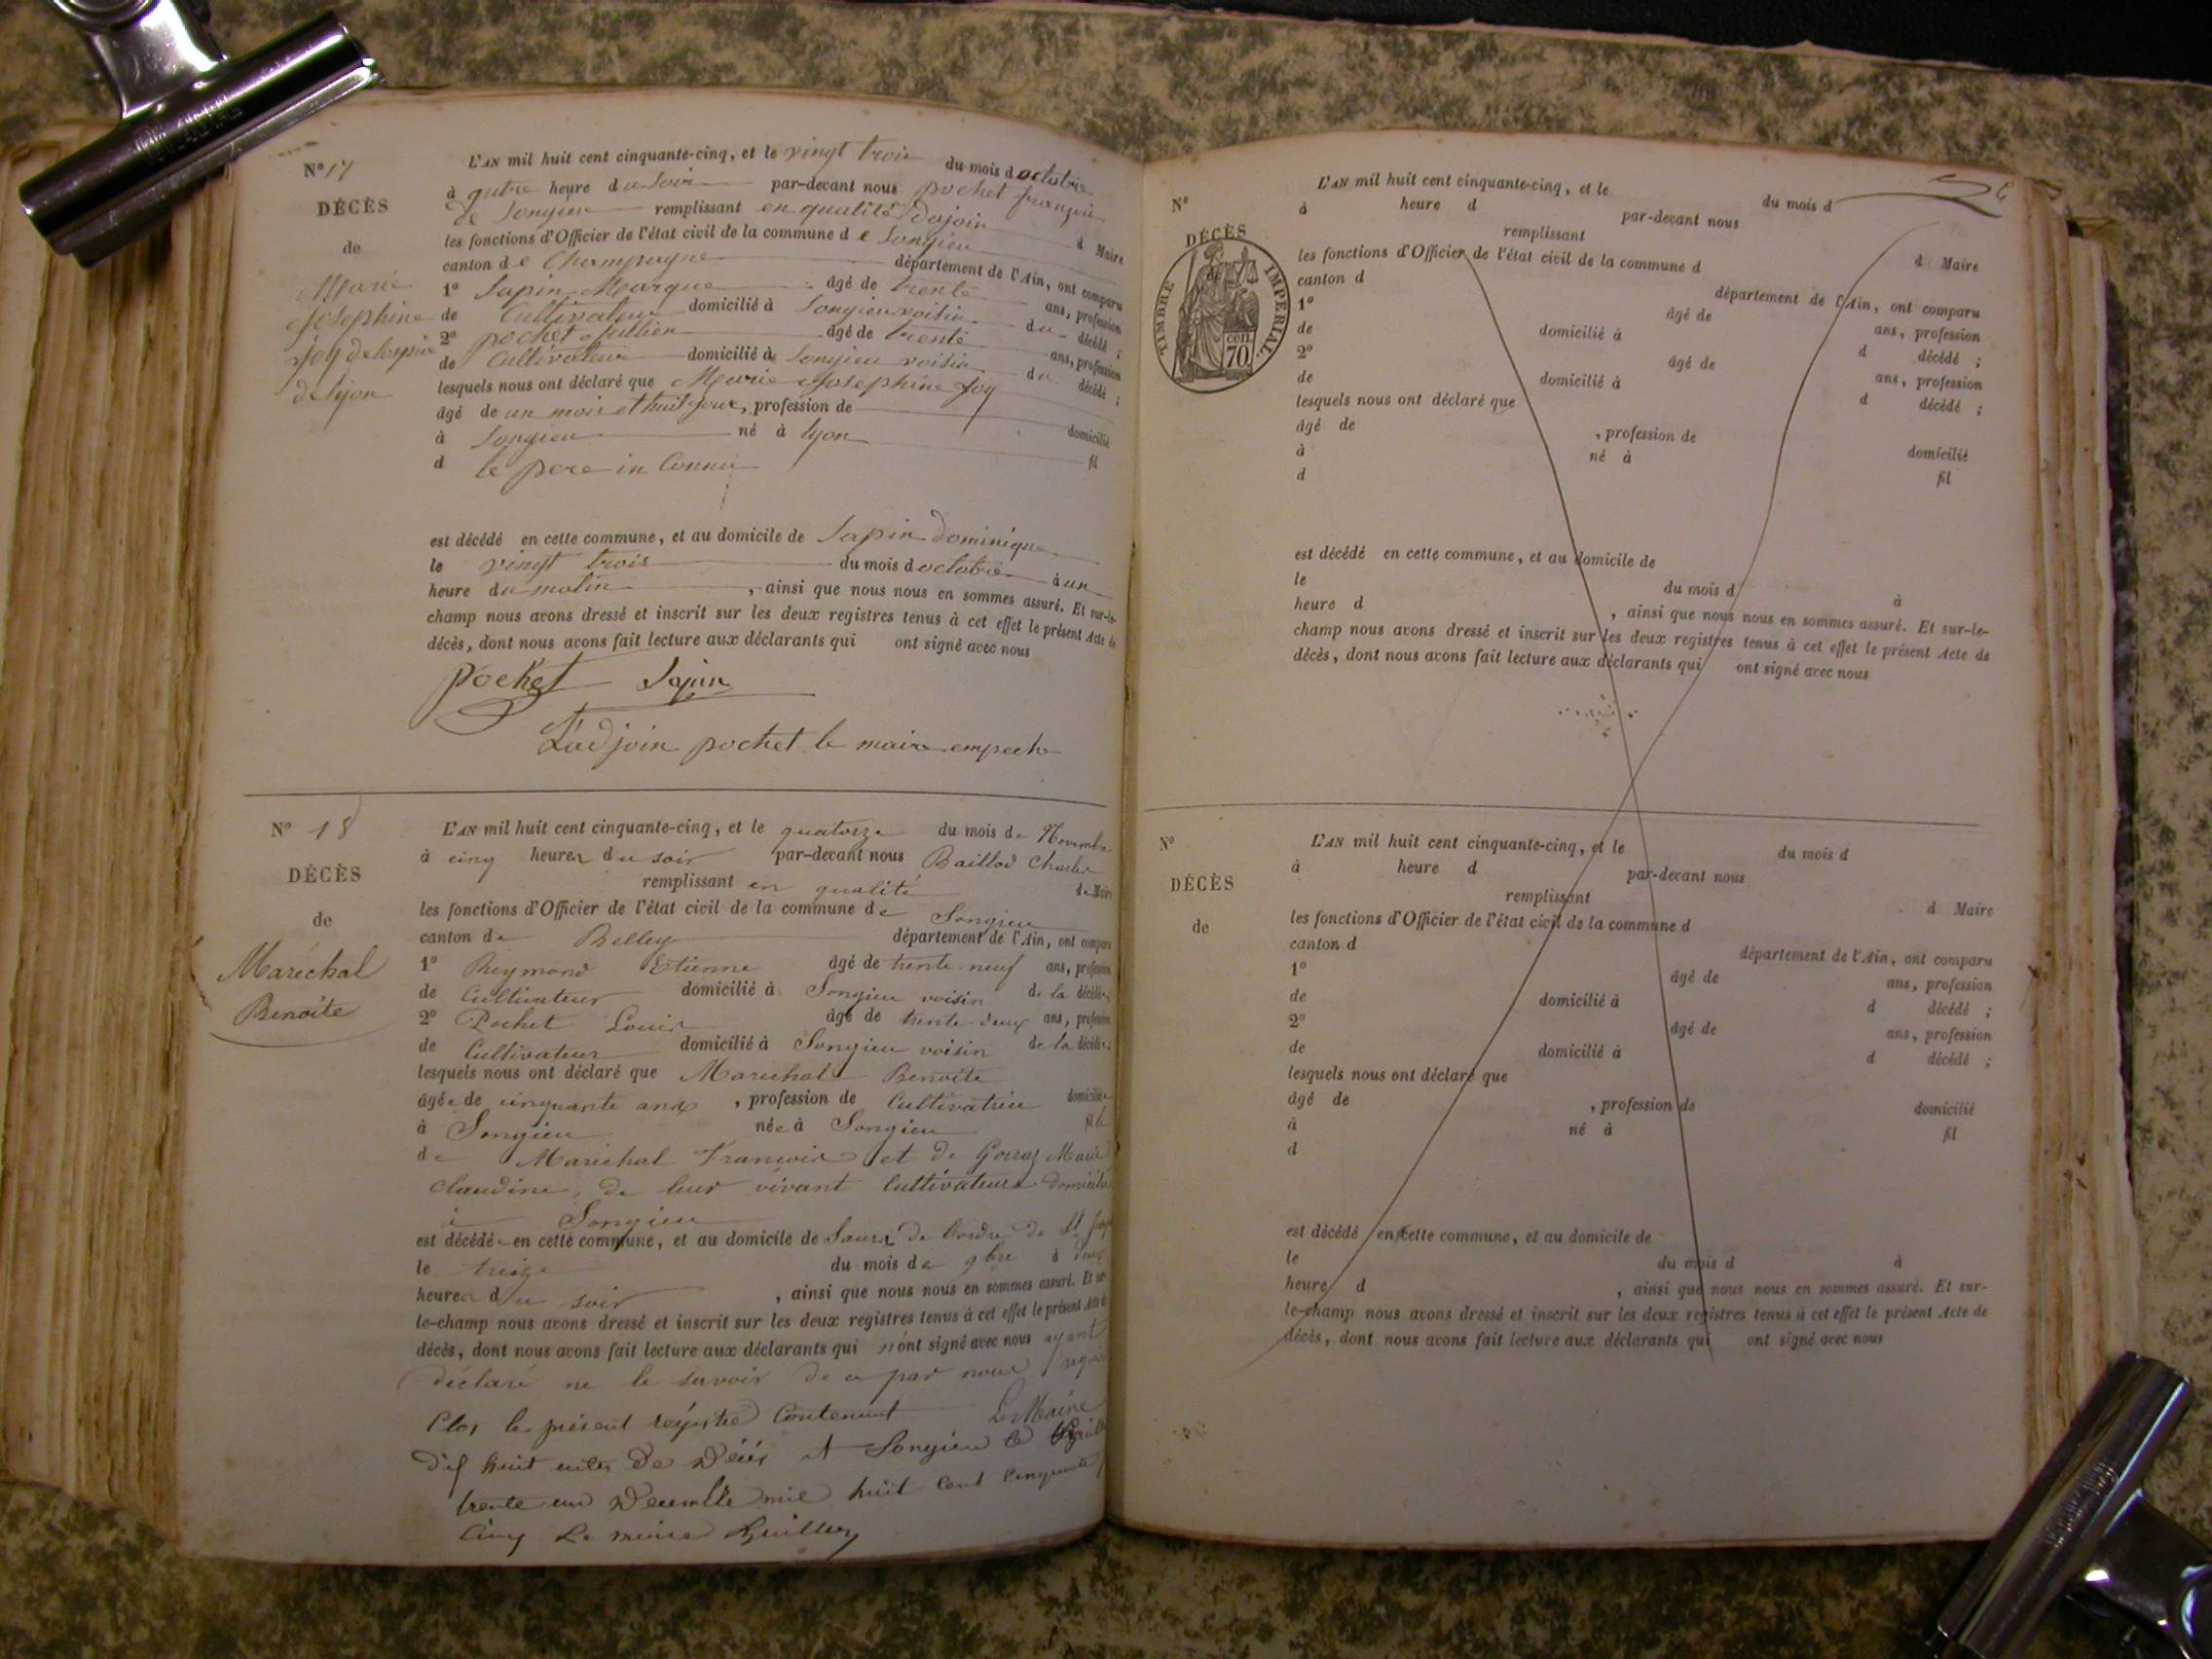 N° 17
DÉCÈS
de
Marie
Josephine
joy de lospice
de lyon
L'AN mil huit cent cinquante-cinq, et le vingt trois du mois d octobre
à quatre heure du soir par-devant nous pochet françois
de Songieu remplissant en qualité dajoin d Maire
les fonctions d'Officier de l'état civil de la commune d e Songieu
canton d e Champagne département de l'Ain, ont comparu
1° Sapin Marque âgé de trente ans, profession
de Cultivateur domicilié à Songieu voisin du décédé ;
2° pochet Jullien âgé de trente ans, profession
de Cultivateur domicilié à Songieu voisin du décédé ;
lesquels nous ont déclaré que Marie Josephine Joy
âgé de un mois et huit jour, profession de domicilié
à Songieu né à lyon fil
d le pere in Connu
est décédé en cette commune, et au domicile de Sapin dominique
le vingt trois du mois d octobre à un
heure du matin , ainsi que nous nous en sommes assuré. Et sur-le-
champ nous avons dressé et inscrit sur les deux registres tenus à cet effet le présent Acte de
décès, dont nous avons fait lecture aux déclarants qui ont signé avec nous
pochet Sapin
L'adjoin pochet le maire empeche
N° 18
DÉCÈS
de
Maréchal
Benoite
L'AN mil huit cent cinquante-cinq, et le quatorze du mois de Novembre
à cinq heures du soir par-devant nous Baillod Charles
remplissant en qualité de Maire
les fonctions d'Officier de l'état civil de la commune de Songieu
canton de Belley département de l'Ain, ont comparu
1° Reymond Etienne âgé de trente-neuf ans, profession
de Cultivateur domicilié à Songieu voisin de la décédée
2° Pochet Louis âgé de trente-deux ans, profession
de Cultivateur domicilié à Songieu voisin de la décédée
lesquels nous ont déclaré que Maréchal Benoite
âgée de cinquante ans , profession de Cultivatrice domiciliée
à Songieu née à Songieu fille
de Maréchal Francois et de Goiraz Marie
claudine, de leur vivant Cultivateurs domicilié
à Songieu
est décédée en cette commune, et au domicile de Saurs de l'ordre de St
le treize du mois de 9bre à deux
heures du soir , ainsi que nous nous en sommes assuré. Et sur
le-champ nous avons dressé et inscrit sur les deux registres tenus à cet effet le présent Acte de
décès, dont nous avons fait lecture aux déclarants qui n'ont signé avec nous ayant
déclaré ne le savoir de ce par nous requis
Le Maire
Clos le présent régistre contenant
dix huit actes de décès A Songieu le
trente un Décembre mil huit cent cinquante
Cinq Le maire
N°
DÉCÈS
TIMBRE IMPERIAL.
cen.
70.
L'AN mil huit cent cinquante-cinq, et le du mois d
à heure d par-devant nous
remplissant d Maire
les fonctions d'Officier de l'état civil de la commune d
canton d département de l'Ain, ont comparu
1° âgé de ans, profession
de domicilié à d décédé ;
2° âgé de ans, profession
de domicilié à d décédé ;
lesquels nous ont déclaré que
âgé de , profession de domicilié
à né à fil
d
est décédé en cette commune, et au domicile de
le du mois d à
heure d , ainsi que nous nous en sommes assuré. Et sur-le-
champ nous avons dressé et inscrit sur les deux registres tenus à cet effet le présent Acte de
décès, dont nous avons fait lecture aux déclarants qui ont signé avec nous
N°
DÉCÈS
de
L'AN mil huit cent cinquante-cinq, et le du mois d
à heure d par-devant nous
remplissant d Maire
les fonctions d'Officier de l'état civil de la commune d
canton d département de l'Ain, ont comparu
1° âgé de ans, profession
de domicilié à d décédé ;
2° âgé de ans, profession
de domicilié à d décédé ;
lesquels nous ont déclaré que
âgé de , profession de domicilié
à né à fil
d
est décédé en cette commune, et au domicile de
le du mois d à
heure d , ainsi que nous nous en sommes assuré. Et sur-
le-champ nous avons dressé et inscrit sur les deux registres tenus à cet effet le présent Acte de
décès, dont nous avons fait lecture aux déclarants qui ont signé avec nous